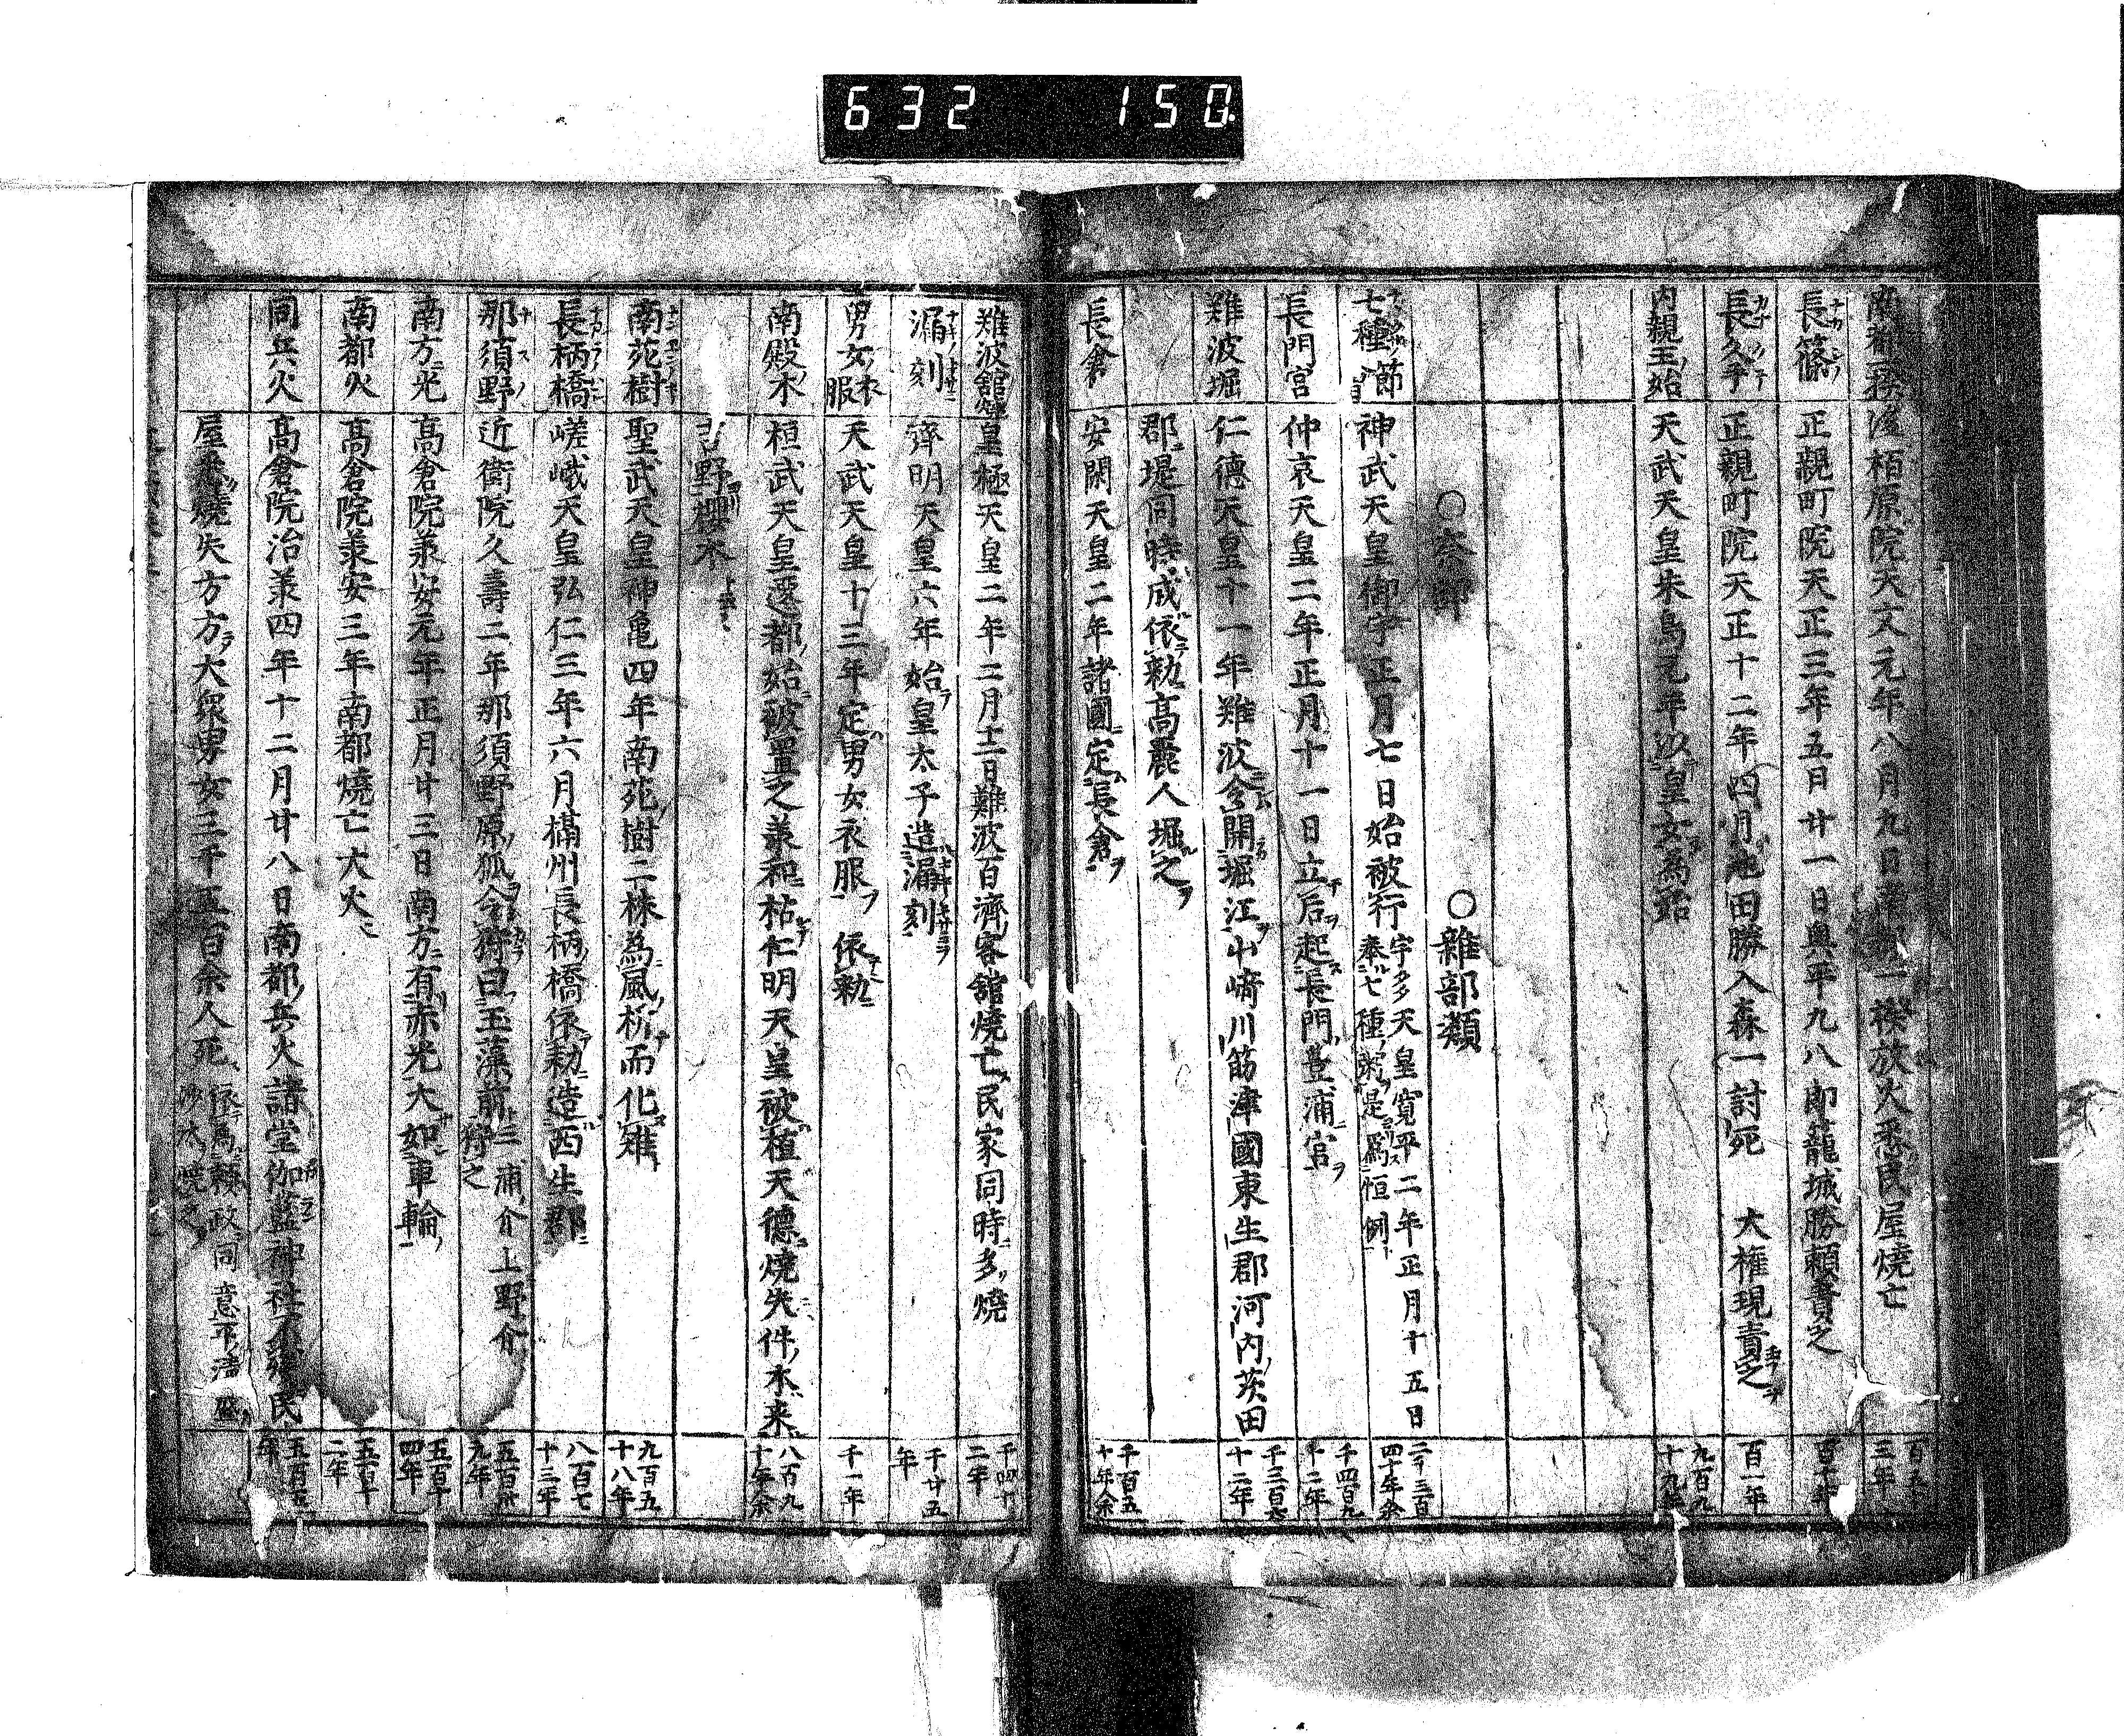 632 150
南都一揆 後柏原院天文元年八月九日南都一揆放火悉民屋燒亡 三年
長篠 正親町院天正三年五日廿一日奥平九八郎籠城勝頼責之
長久手 正親町院天正十二年四月池田勝入森一討死 大権現責之 百一年
内親王始 天武天皇朱鳥元年以皇女為始 九百九十九年
○奈部 ○雜部類
七種節 神武天皇御宇正月七日始被行 宇多天皇寛平二年正月十五日奉七種粥是爲恒例 二千三百四十年余
長門宮 仲哀天皇二年正月十一日立后起長門豊浦宮 千四百九十二年
難波堀 仁德天皇十一年難波令開堀江山﨑川筋津國東生郡河内茨田 千三百六十二年
郡堤同時成依勅高麗人堀之
長倉 安閑天皇二年諸國定長倉 千百五十年余
難波舘 皇極天皇二年二月廿二日難波百濟客舘燒亡民家同時多燒 千四十二年
漏刻 齊明天皇六年始皇太子造漏刻 千廿五年
男女衣服 天武天皇十三年定男女衣服依勅 千一年
南殿木 桓武天皇遷都始被置之羕和枯仁明天皇被植天德燒失件木来 八百九十年余
吉野櫻木
南苑樹 聖武天皇神亀四年南苑樹二株為風折而化雉 九百五十八年
長柄橋 嵯峨天皇弘仁三年六月槗州長柄橋依勅造西生郡 八百七十三年
那須野 近衛院久壽二年那須野原狐令狩曰玉藻前 三浦介上野介狩之 五百卅九年
南方光 高倉院羕安元年正月廿三日南方有赤光大如車輪 五百十四年
南都火 高倉院羕安三年南都燒亡大火 五百十二年
同兵火 高倉院治羕四年十二月廿八日南都兵火諸堂伽藍神社不残民 五百五年
屋悉燒失方方大衆男女三千五百余人死 依為頼政同意平清盛